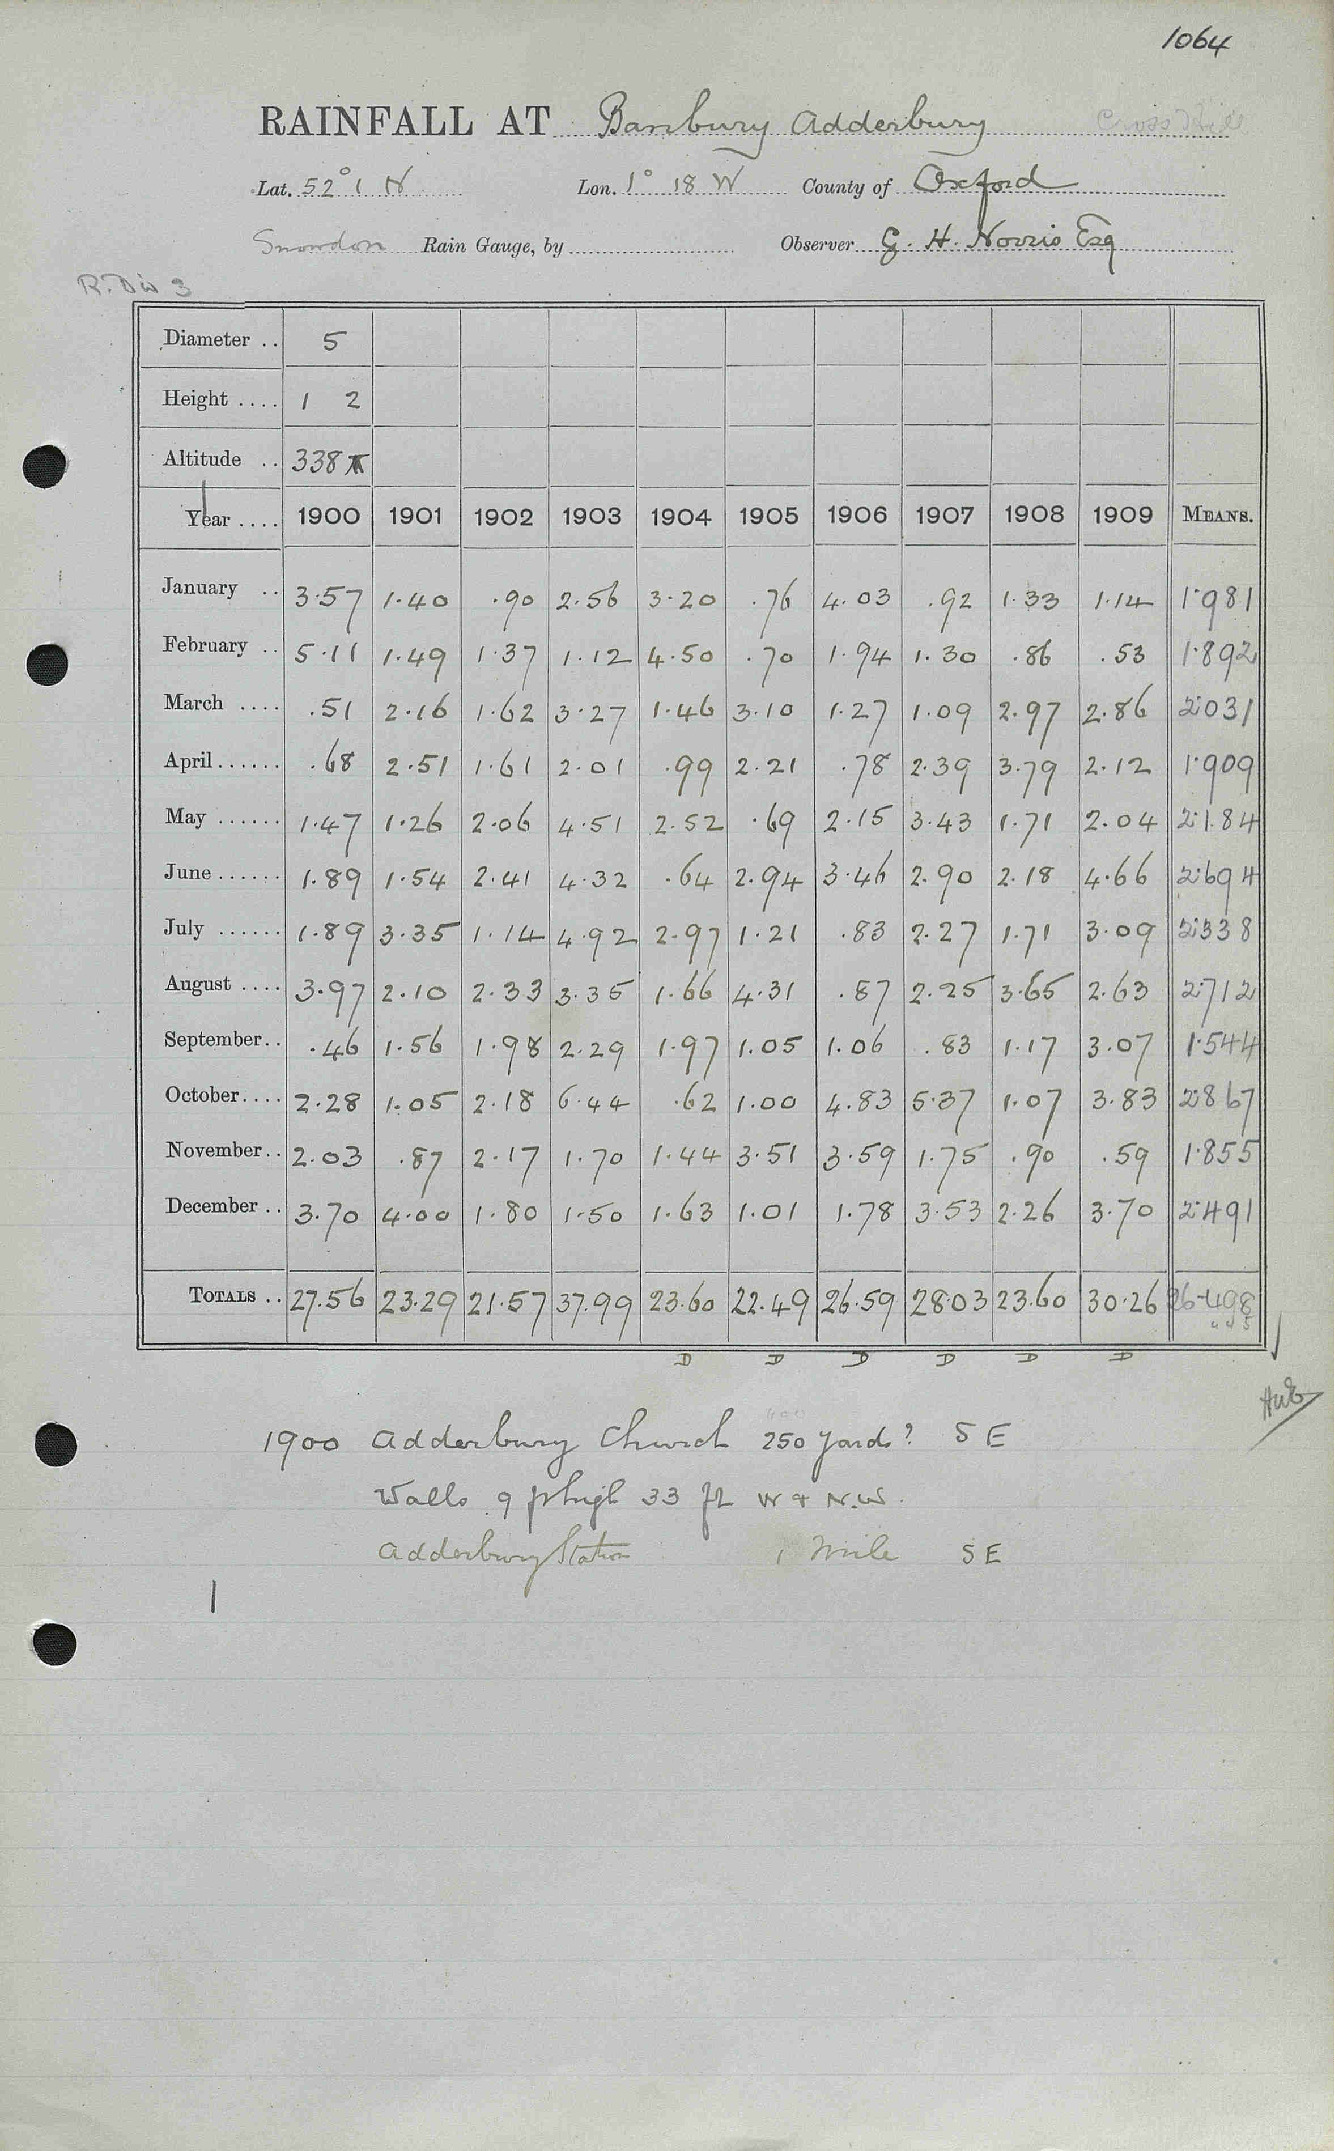 1064
RAINFALL AT Banbury Adderbury Cross Hill
Lat. 52° 1 N Lon. 1° 18 W County of Oxford
Snowdon Rain Gauge, by Observer G. H. Norris Esq
R. Div 3
Diameter .. 5
Height .... 1 2
Altitude .. 338
Year .... 1900 1901 1902 1903 1904 1905 1906 1907 1908 1909 MEANS.
January .. 3.57 1.40 .90 2.56 3.20 .76 4.03 .92 1.33 1.14 1.981
February .. 5.11 1.49 1.37 1.12 4.50 .70 1.94 1.30 .86 .53 1.892
March .... .51 2.16 1.62 3.27 1.46 3.10 1.27 1.09 2.97 2.86 2.031
April ...... .68 2.51 1.61 2.01 .99 2.21 .78 2.39 3.79 2.12 1.909
May ...... 1.47 1.26 2.06 4.51 2.52 .69 2.15 3.43 1.71 2.04 2.184
June ...... 1.89 1.54 2.41 4.32 .64 2.94 3.46 2.90 2.18 4.66 2.694
July ...... 1.89 3.35 1.14 4.92 2.97 1.21 .83 2.27 1.71 3.09 2.338
August .... 3.97 2.10 2.33 3.35 1.66 4.31 .87 2.25 3.65 2.63 2.712
September .. .46 1.56 1.98 2.29 1.97 1.05 1.06 .83 1.17 3.07 1.544
October .... 2.28 1.05 2.18 6.44 .62 1.00 4.83 5.37 1.07 3.83 2.867
November .. 2.03 .87 2.17 1.70 1.44 3.51 3.59 1.75 .90 .59 1.855
December .. 3.70 4.00 1.80 1.50 1.63 1.01 1.78 3.53 2.26 3.70 2.491
TOTALS .. 27.56 23.29 21.57 37.99 23.60 22.49 26.59 28.03 23.60 30.26 26.498
D D D D D D
1900 Adderbury Church 250 yards? S E
Walls 9 ft high 33 ft W & N.W.
Adderbury Station 1 Mile S E